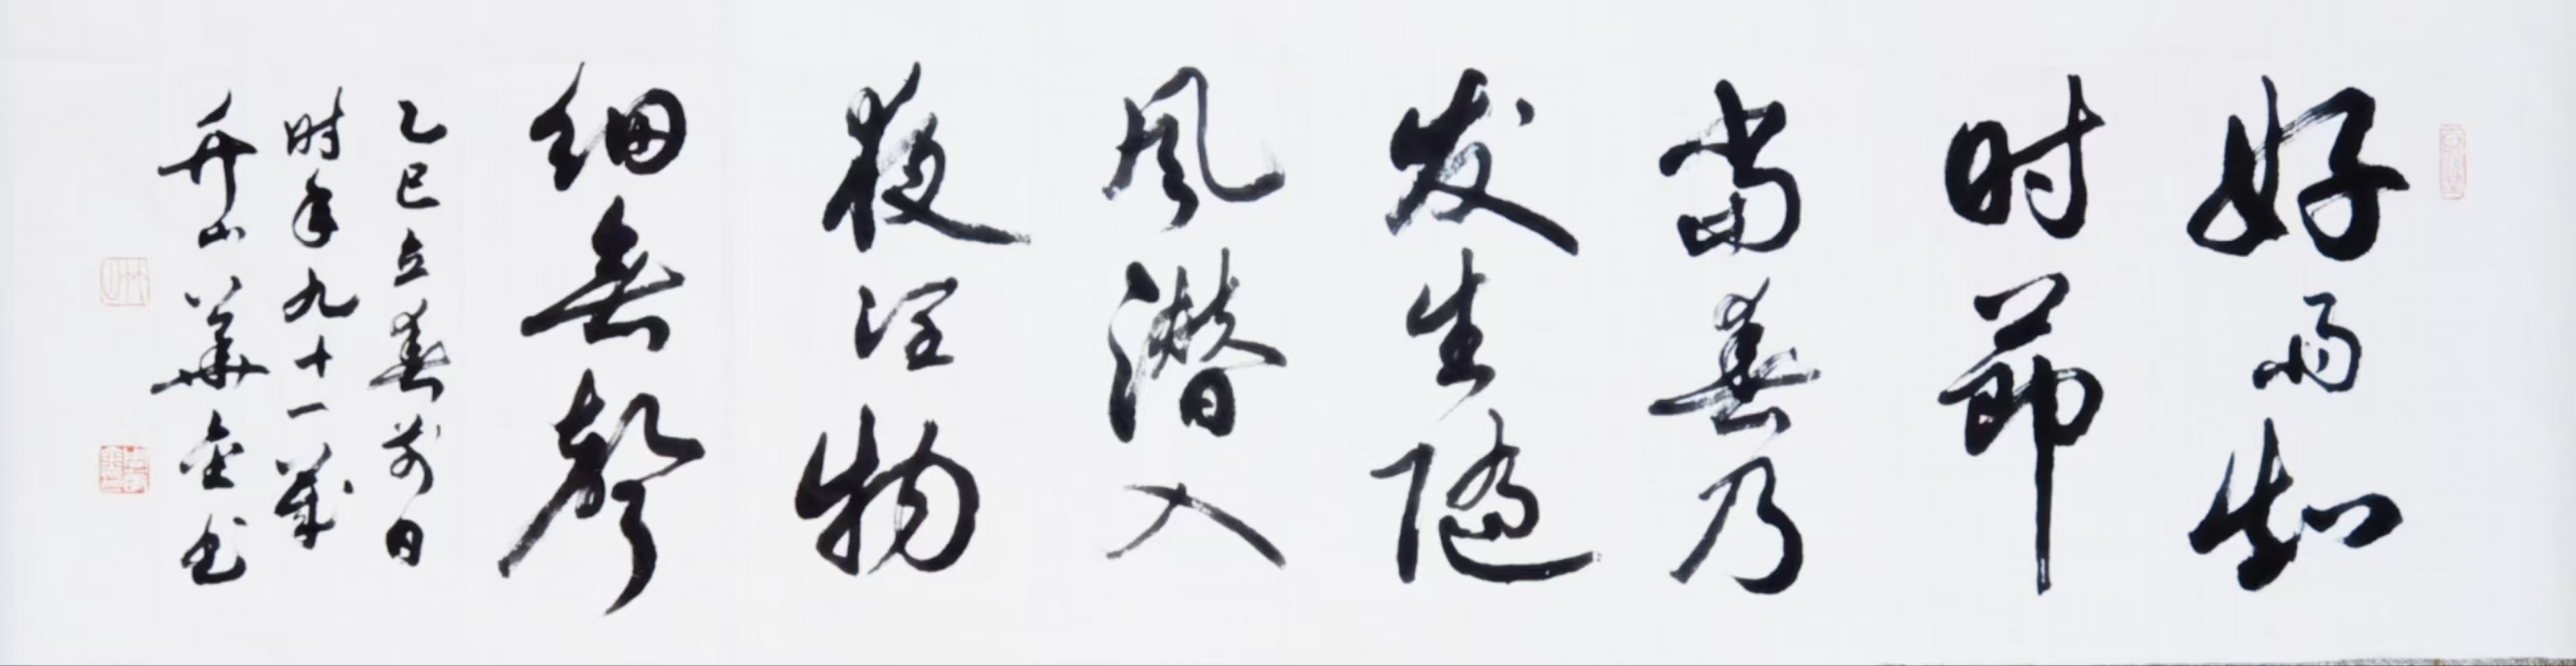 好雨知
时节
当春乃
发生随
风潜入
夜润物
细无聲
乙巳立春前日
时年九十一岁
井山華金书